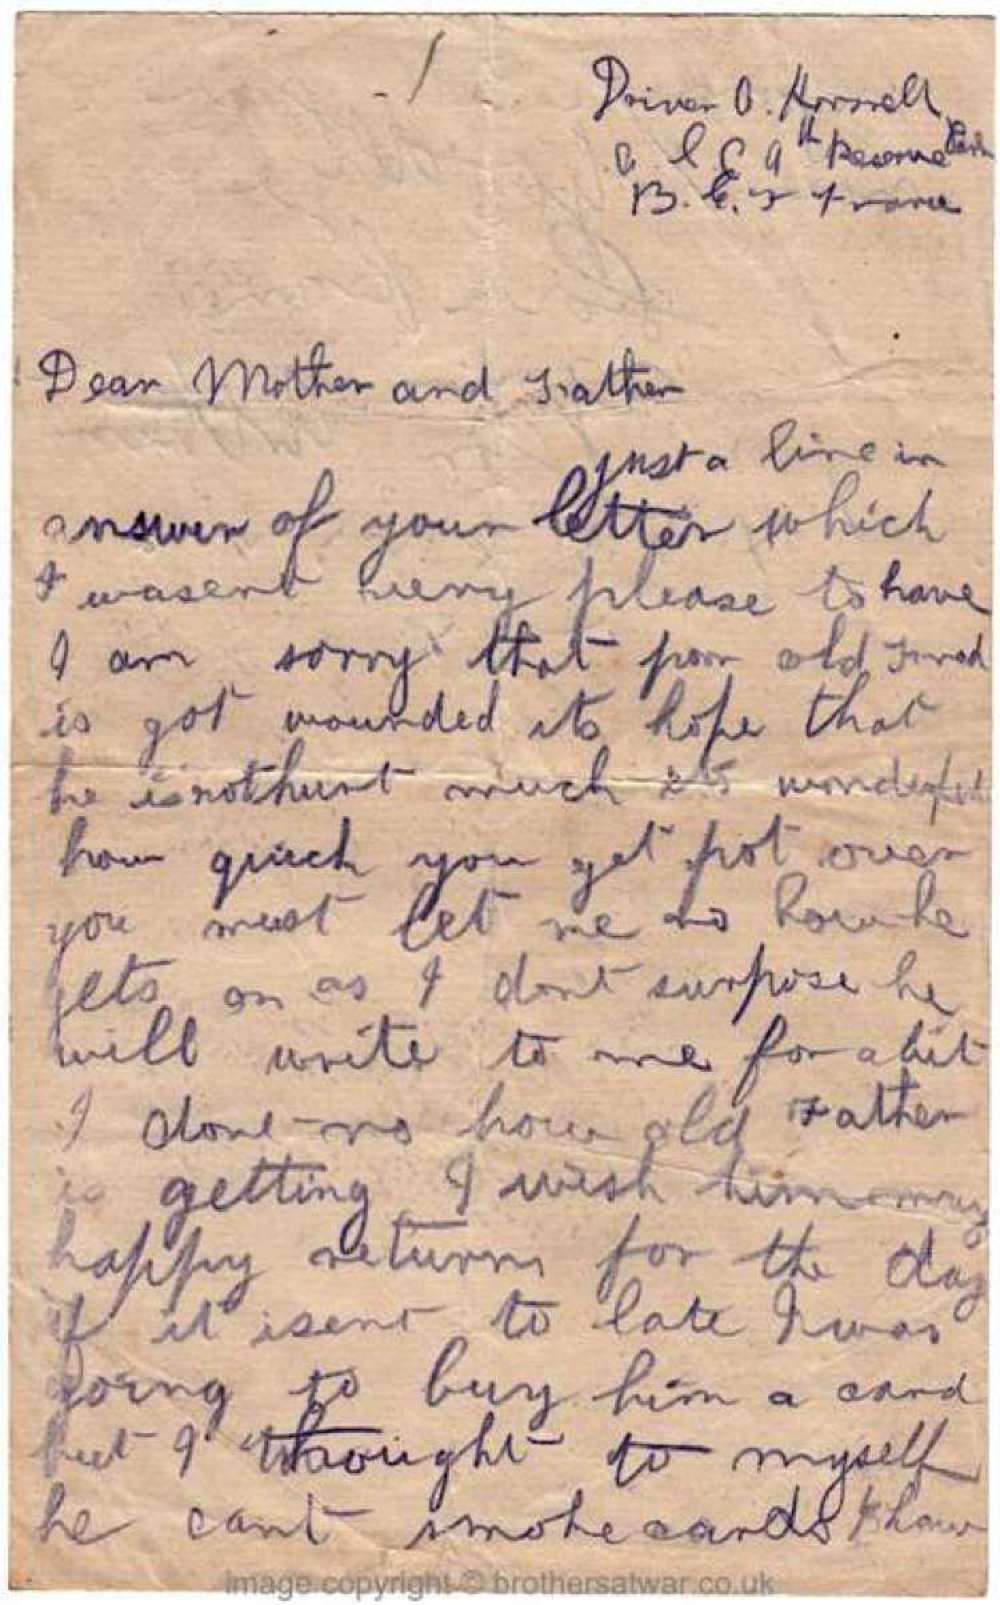 Driver O. Horsnell
9th Reserve Park
B. E. F France
Dear Mother and Father
just a line in
answer of your letter which
I wasent very please to have
I am sorry that poor old Fred
is got wounded its hope that
he is not hurt much its wonderful
how quick you get pot over
you must let me no how he
gets on as I dont surpose he
will write to me for a bit
I dont no how old Father
is getting I wish him many
happy returns for the day
if it isent to late I was
going to buy him a card
but I thought to myself
he cant smoke cards
image copyright © brothersatwar.co.uk